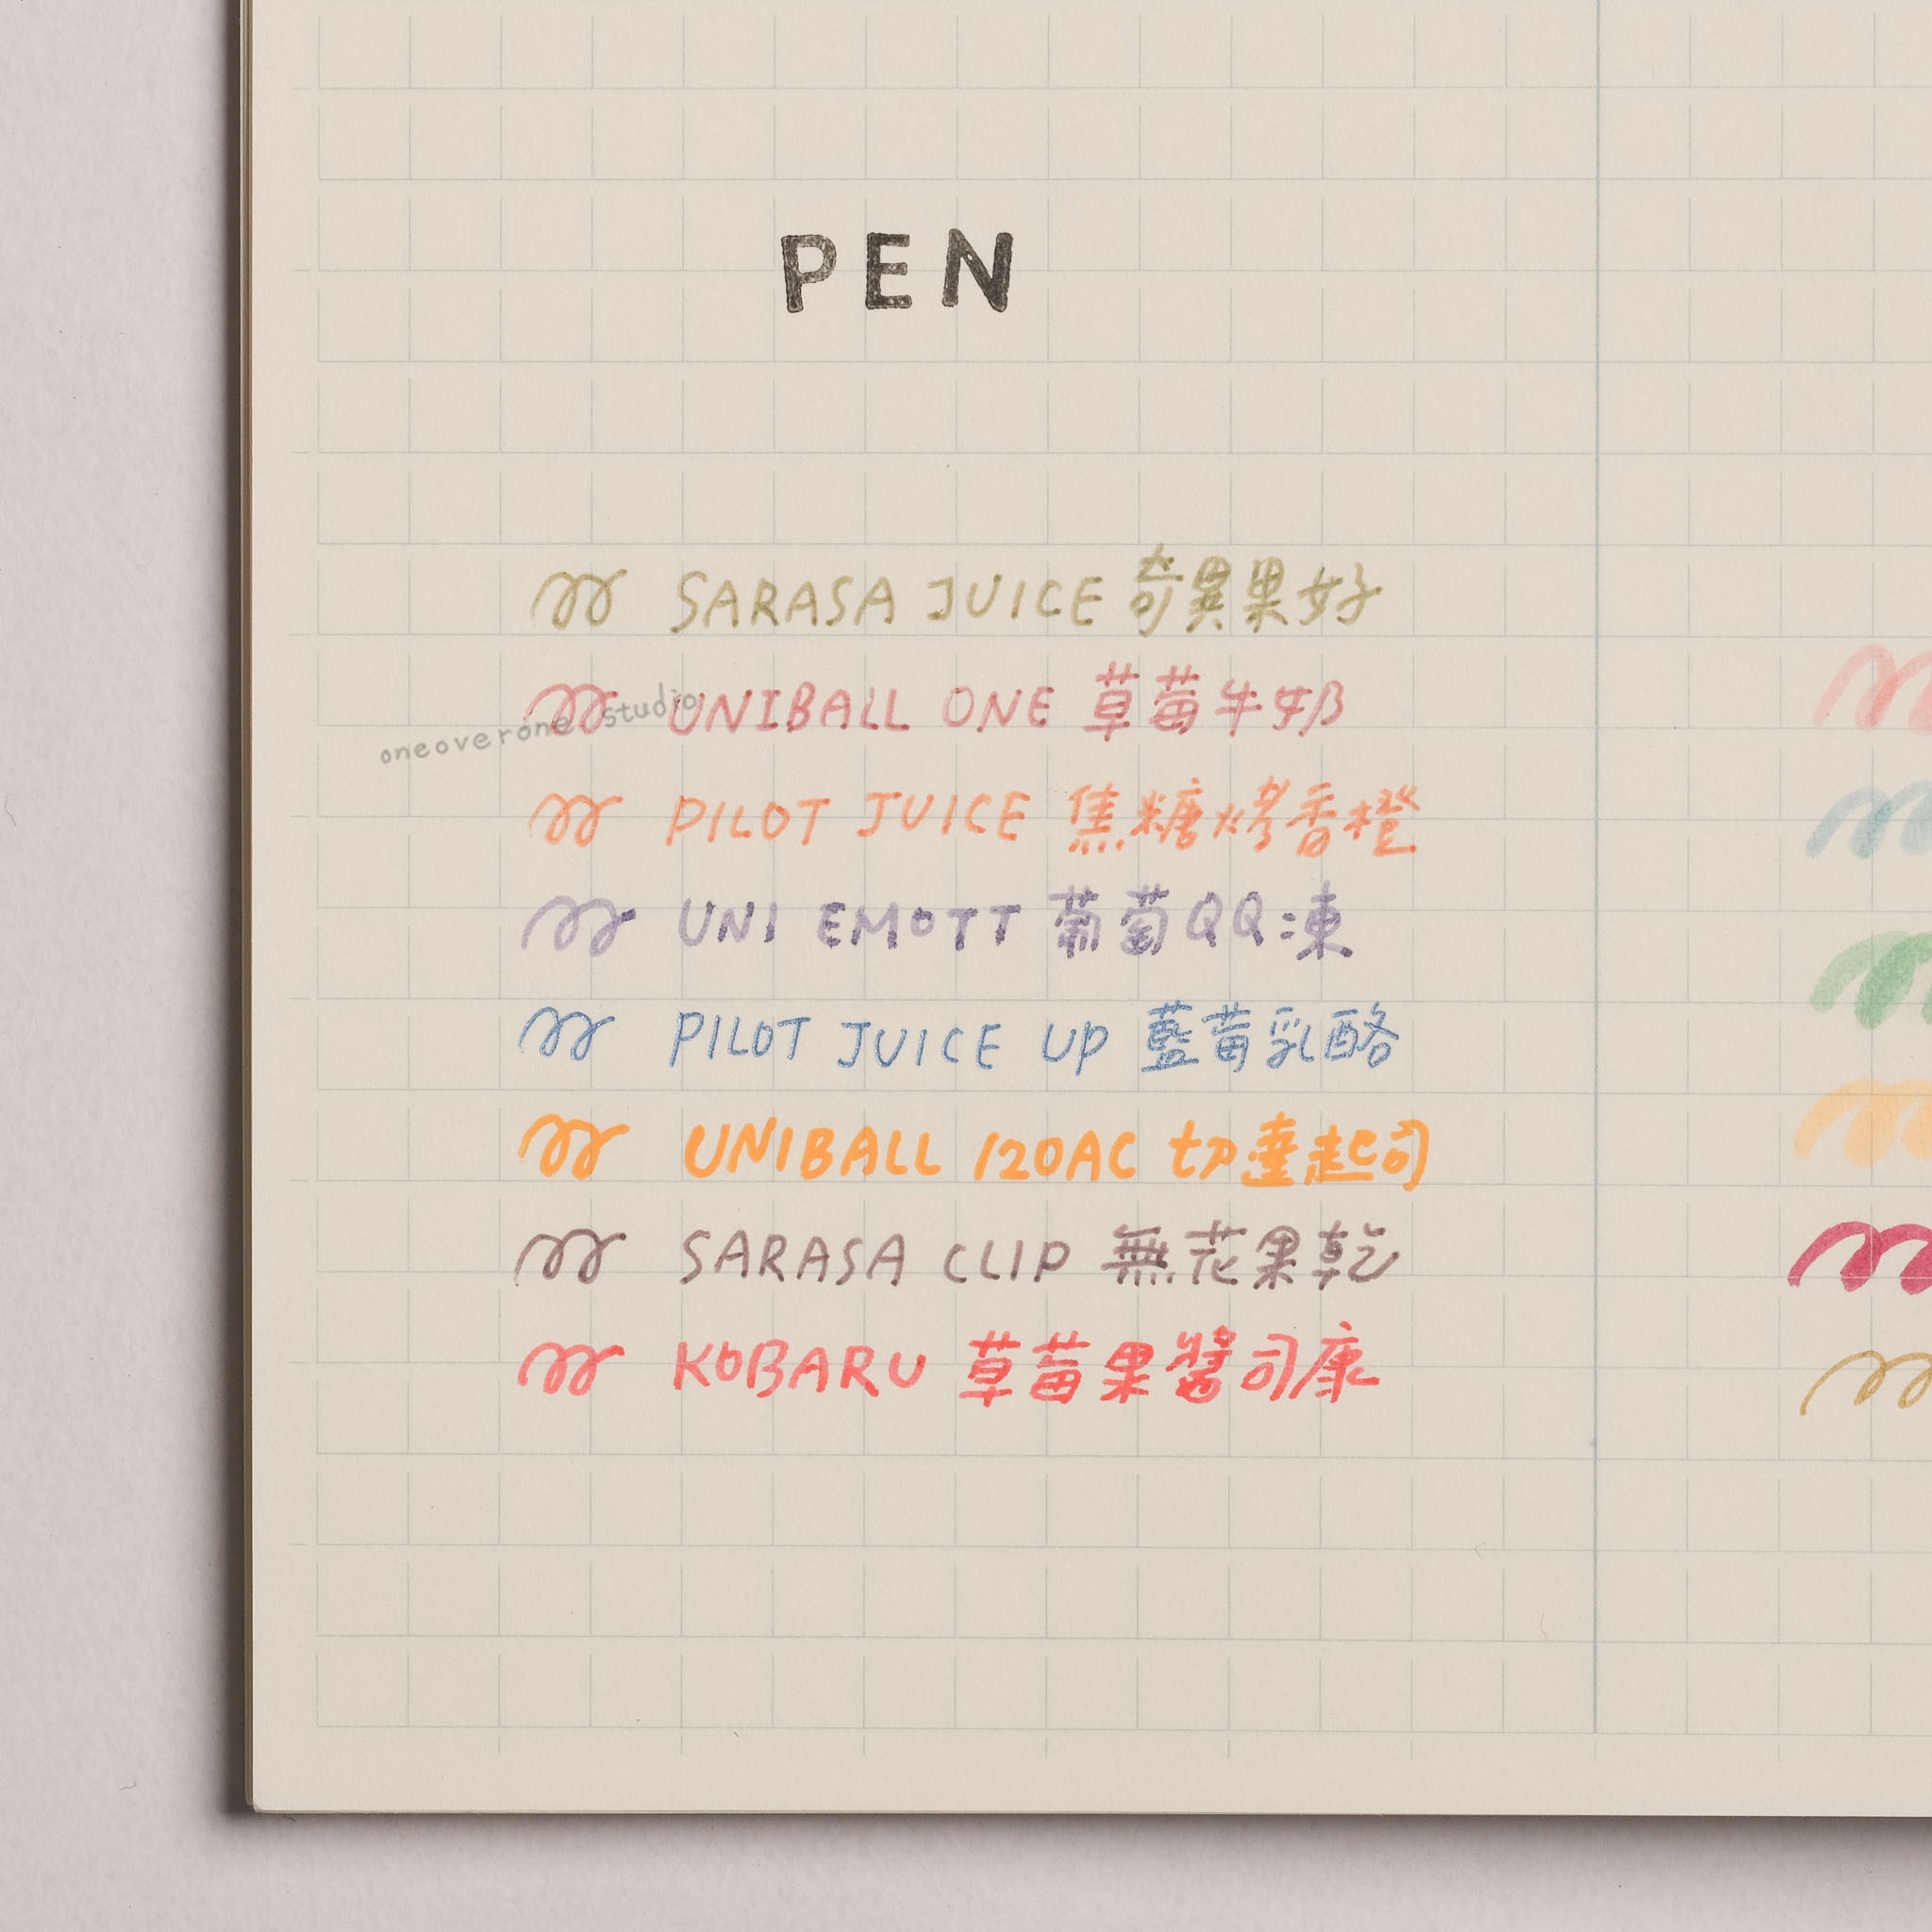 PEN
SARASA JUICE 奇異果好
UNIBALL ONE 草莓牛奶
oneoverone studio
PILOT JUICE 焦糖烤香橙
UNI EMOTT 葡萄QQ凍
PILOT JUICE UP 藍莓乳酪
UNIBALL 120AC 切達起司
SARASA CLIP 無花果乾
KOBARU 草莓果醬司康